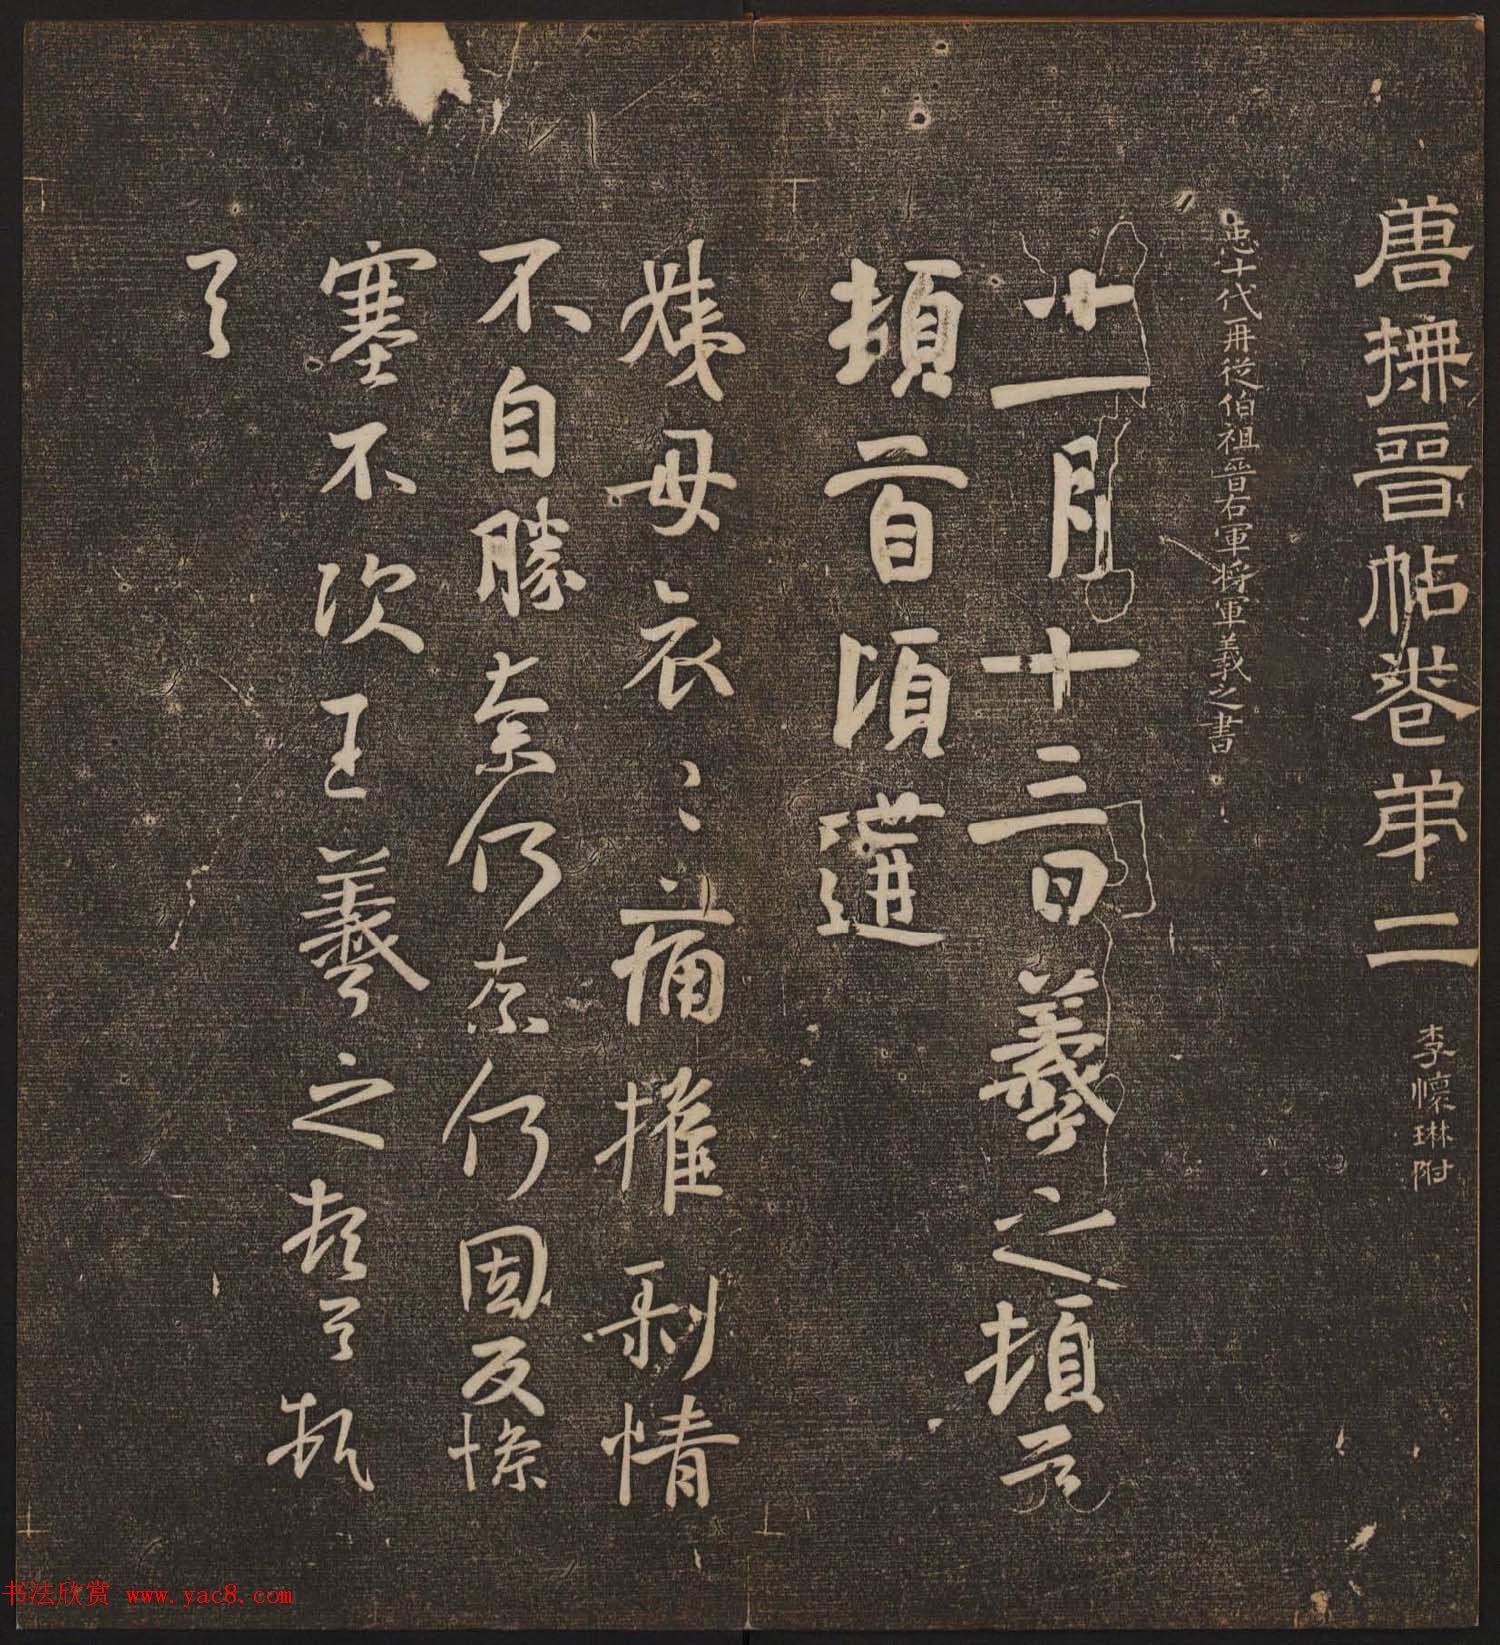 唐撫晉帖卷弟二 李懷琳附
𢘑十代再從伯祖晉右軍將軍羲之書
十一月十三日羲之頓首
頓首頃遘
姨母哀〻痛摧剝情
不自勝奈何奈何因反慘
塞不次王羲之頓首頓
首
书法欣赏 www.yac8.com